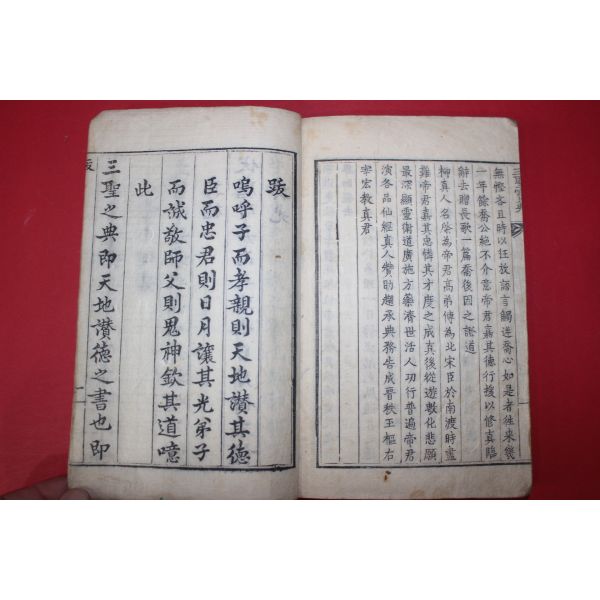 無慳吝且時以任放語言觸迕喬心如是者往來幾
一年餘喬公絶不介意帝君嘉其德行授以修真臨
辭去贈長歌一篇喬後因之證道
柳真人名棨為帝君高弟傅為北宋臣於南渡時盡
難帝君嘉其忠憐其才度之成真後從遊敷化悲願
最深顯靈衛道廣施方藥濟世活人功行普遍帝君
演各品仙經真人贊助趨承典務告成晉秩玉樞右
宰宏教真君
跋
嗚呼子而孝親則天地讚其德
臣而忠君則日月讓其光弟子
而誠敬師父則鬼神欽其道噫
此
三聖之典即天地讚德之書也即
跋
一